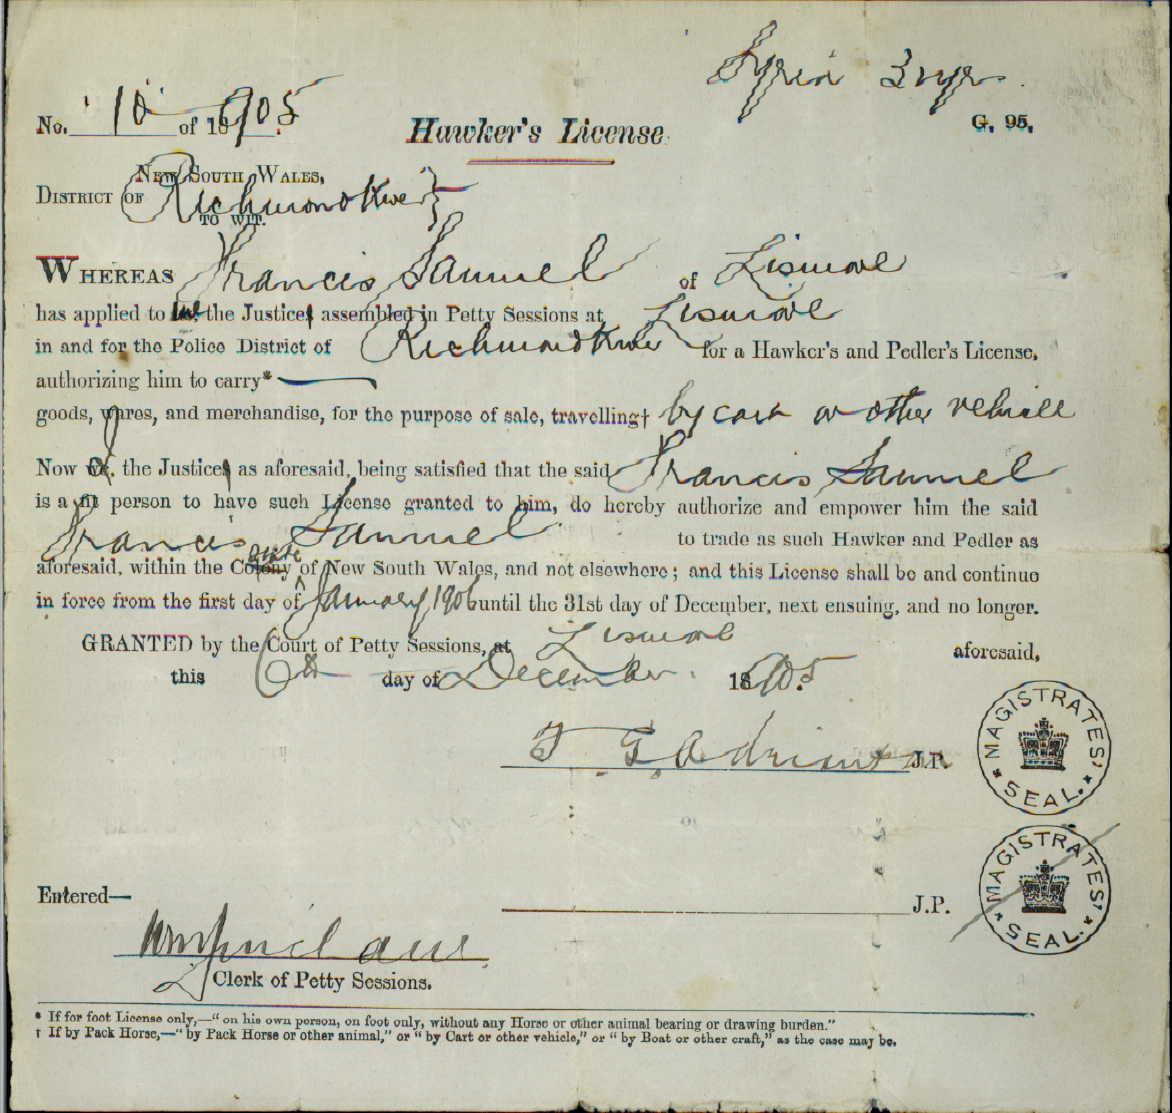 Syria 3 nyr
No. 10 of 1905.
Hawker's License
G. 95.
New South Wales,
District of Richmond River }
to wit.
Whereas Francis Samuel of Lismore
has applied to me the Justice assembled in Petty Sessions at Lismore
in and for the Police District of Richmond River for a Hawker's and Pedler's License,
authorizing him to carry*
goods, wares, and merchandise, for the purpose of sale, travelling† by cart or other vehicle
Now I, the Justice as aforesaid, being satisfied that the said Francis Samuel
is a fit person to have such License granted to him, do hereby authorize and empower him the said
Francis Samuel to trade as such Hawker and Pedler as
aforesaid, within the Colony State of New South Wales, and not elsewhere; and this License shall be and continue
in force from the first day of January 1906 until the 31st day of December, next ensuing, and no longer.
GRANTED by the Court of Petty Sessions, at Lismore aforesaid,
this 6th day of December 1905.
J.P.
MAGISTRATES' SEAL.
MAGISTRATES' SEAL.
Entered—
J.P.
Clerk of Petty Sessions.
* If for foot License only,—"on his own person, on foot only, without any Horse or other animal bearing or drawing burden."
† If by Pack Horse,—"by Pack Horse or other animal," or "by Cart or other vehicle," or "by Boat or other craft," as the case may be.